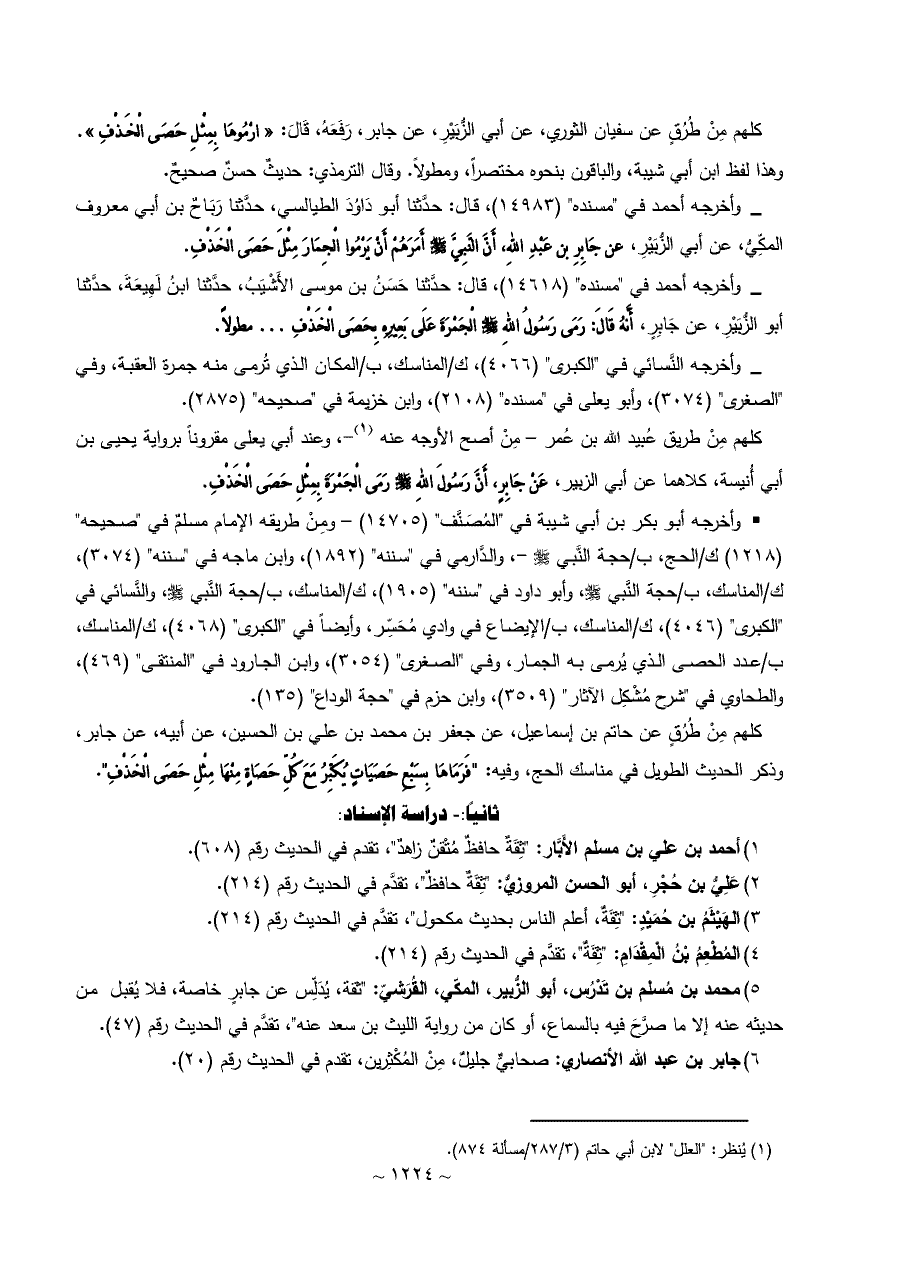 كلهم مِنْ طُرُقٍ عن سفيان الثوري، عن أبي الزُّبَيْرِ، عن جابر، رَفَعَهُ، قَالَ: « ارْمُوهَا بِمِثْلِ حَصَى الْخَذْفِ ».
وهذا لفظ ابن أبي شيبة، والباقون بنحوه مختصراً، ومطولاً. وقال الترمذي: حديثٌ حسنٌ صحيحٌ.
_ وأخرجه أحمد في "مسنده" (١٤٩٨٣)، قال: حدَّثنا أبو دَاوُدَ الطيالسي، حدَّثنا رَبَاحُ بن أبي معروف
المكِّيُّ، عن أبي الزُّبَيْرِ، عن جَابِرِ بن عَبْدِ الله، أَنَّ النَّبِيَّ ﷺ أَمَرَهُمْ أَنْ يَرْمُوا الْجِمَارَ مِثْلَ حَصَى الْخَذْفِ.
_ وأخرجه أحمد في "مسنده" (١٤٦١٨)، قال: حدثنا حَسَنُ بن موسى الأَشْيَبُ، حدَّثنا ابنُ لَهِيعَةَ، حدَّثنا
أبو الزُّبَيْرِ، عن جَابِرٍ، أَنَّهُ قَالَ: رَمَى رَسُولُ اللهِ ﷺ الْجَمْرَةَ عَلَى بَعِيرِهِ بِحَصَى الْخَذْفِ ... مطولاً.
_ وأخرجه النَّسائي في "الكبرى" (٤٠٦٦)، ك/المناسك، ب/المكان الذي تُرمى منه جمرة العقبة، وفي
"الصغرى" (٣٠٧٤)، وأبو يعلى في "مسنده" (٢١٠٨)، وابن خزيمة في "صحيحه" (٢٨٧٥).
كلهم مِنْ طريق عُبيد الله بن عُمر – مِنْ أصح الأوجه عنه (١)–، وعند أبي يعلى مقروناً برواية يحيى بن
أبي أُنيسة، كلاهما عن أبي الزبير، عَنْ جَابِرٍ، أَنَّ رَسُولَ اللهِ ﷺ رَمَى الْجَمْرَةَ بِمِثْلِ حَصَى الْخَذْفِ.
▪ وأخرجه أبو بكر بن أبي شيبة في "المُصَنَّف" (١٤٧٠٥) – ومِنْ طريقه الإمام مسلمٌ في "صحيحه"
(١٢١٨) ك/الحج، ب/حجة النَّبي ﷺ –، والدَّارمي في "سننه" (١٨٩٢)، وابن ماجه في "سننه" (٣٠٧٤)،
ك/المناسك، ب/حجة النَّبي ﷺ، وأبو داود في "سننه" (١٩٠٥)، ك/المناسك، ب/حجة النَّبي ﷺ، والنَّسائي في
"الكبرى" (٤٠٤٦)، ك/المناسك، ب/الإيضاع في وادي مُحَسِّر، وأيضاً في "الكبرى" (٤٠٦٨)، ك/المناسك،
ب/عدد الحصى الذي يُرمى به الجمار، وفي "الصغرى" (٣٠٥٤)، وابن الجارود في "المنتقى" (٤٦٩)،
والطحاوي في "شرح مُشْكِل الآثار" (٣٥٠٩)، وابن حزم في "حجة الوداع" (١٣٥).
كلهم مِنْ طُرُقٍ عن حاتم بن إسماعيل، عن جعفر بن محمد بن علي بن الحسين، عن أبيه، عن جابر،
وذكر الحديث الطويل في مناسك الحج، وفيه: "فَرَمَاهَا بِسَبْعِ حَصَيَاتٍ يُكَبِّرُ مَعَ كُلِّ حَصَاةٍ مِنْهَا مِثْلِ حَصَى الْخَذْفِ".
ثانياً:- دراسة الإسناد:
١) أحمد بن علي بن مسلم الأبَّار: "ثِقَةٌ حافظٌ مُتْقنٌ زاهدٌ"، تقدم في الحديث رقم (٦٠٨).
٢) عَلِيُّ بن حُجْرٍ، أبو الحسن المروزيُّ: "ثِقَةٌ حافظٌ"، تقدَّم في الحديث رقم (٢١٤).
٣) الهَيْثَمُ بن حُمَيْدٍ: "ثِقَةٌ، أعلم الناس بحديث مكحول"، تقدَّم في الحديث رقم (٢١٤).
٤) المُطْعِمُ بْنُ الْمِقْدَامِ: "ثِقَةٌ"، تقدَّم في الحديث رقم (٢١٤).
٥) محمد بن مُسلم بن تَدْرُس، أبو الزُّبير، المكّي، القُرَشيّ: "ثقة، يُدَلِّس عن جابرٍ خاصة، فلا يُقبل من
حديثه عنه إلا ما صرَّحَ فيه بالسماع، أو كان من رواية الليث بن سعد عنه"، تقدَّم في الحديث رقم (٤٧).
٦) جابر بن عبد الله الأنصاري: صحابيٌّ جليلٌ، مِنْ المُكْثِرِين، تقدم في الحديث رقم (٢٠).
(١) يُنظر: "العلل" لابن أبي حاتم (٢٨٧/٣/مسألة ٨٧٤).
~ ١٢٢٤ ~